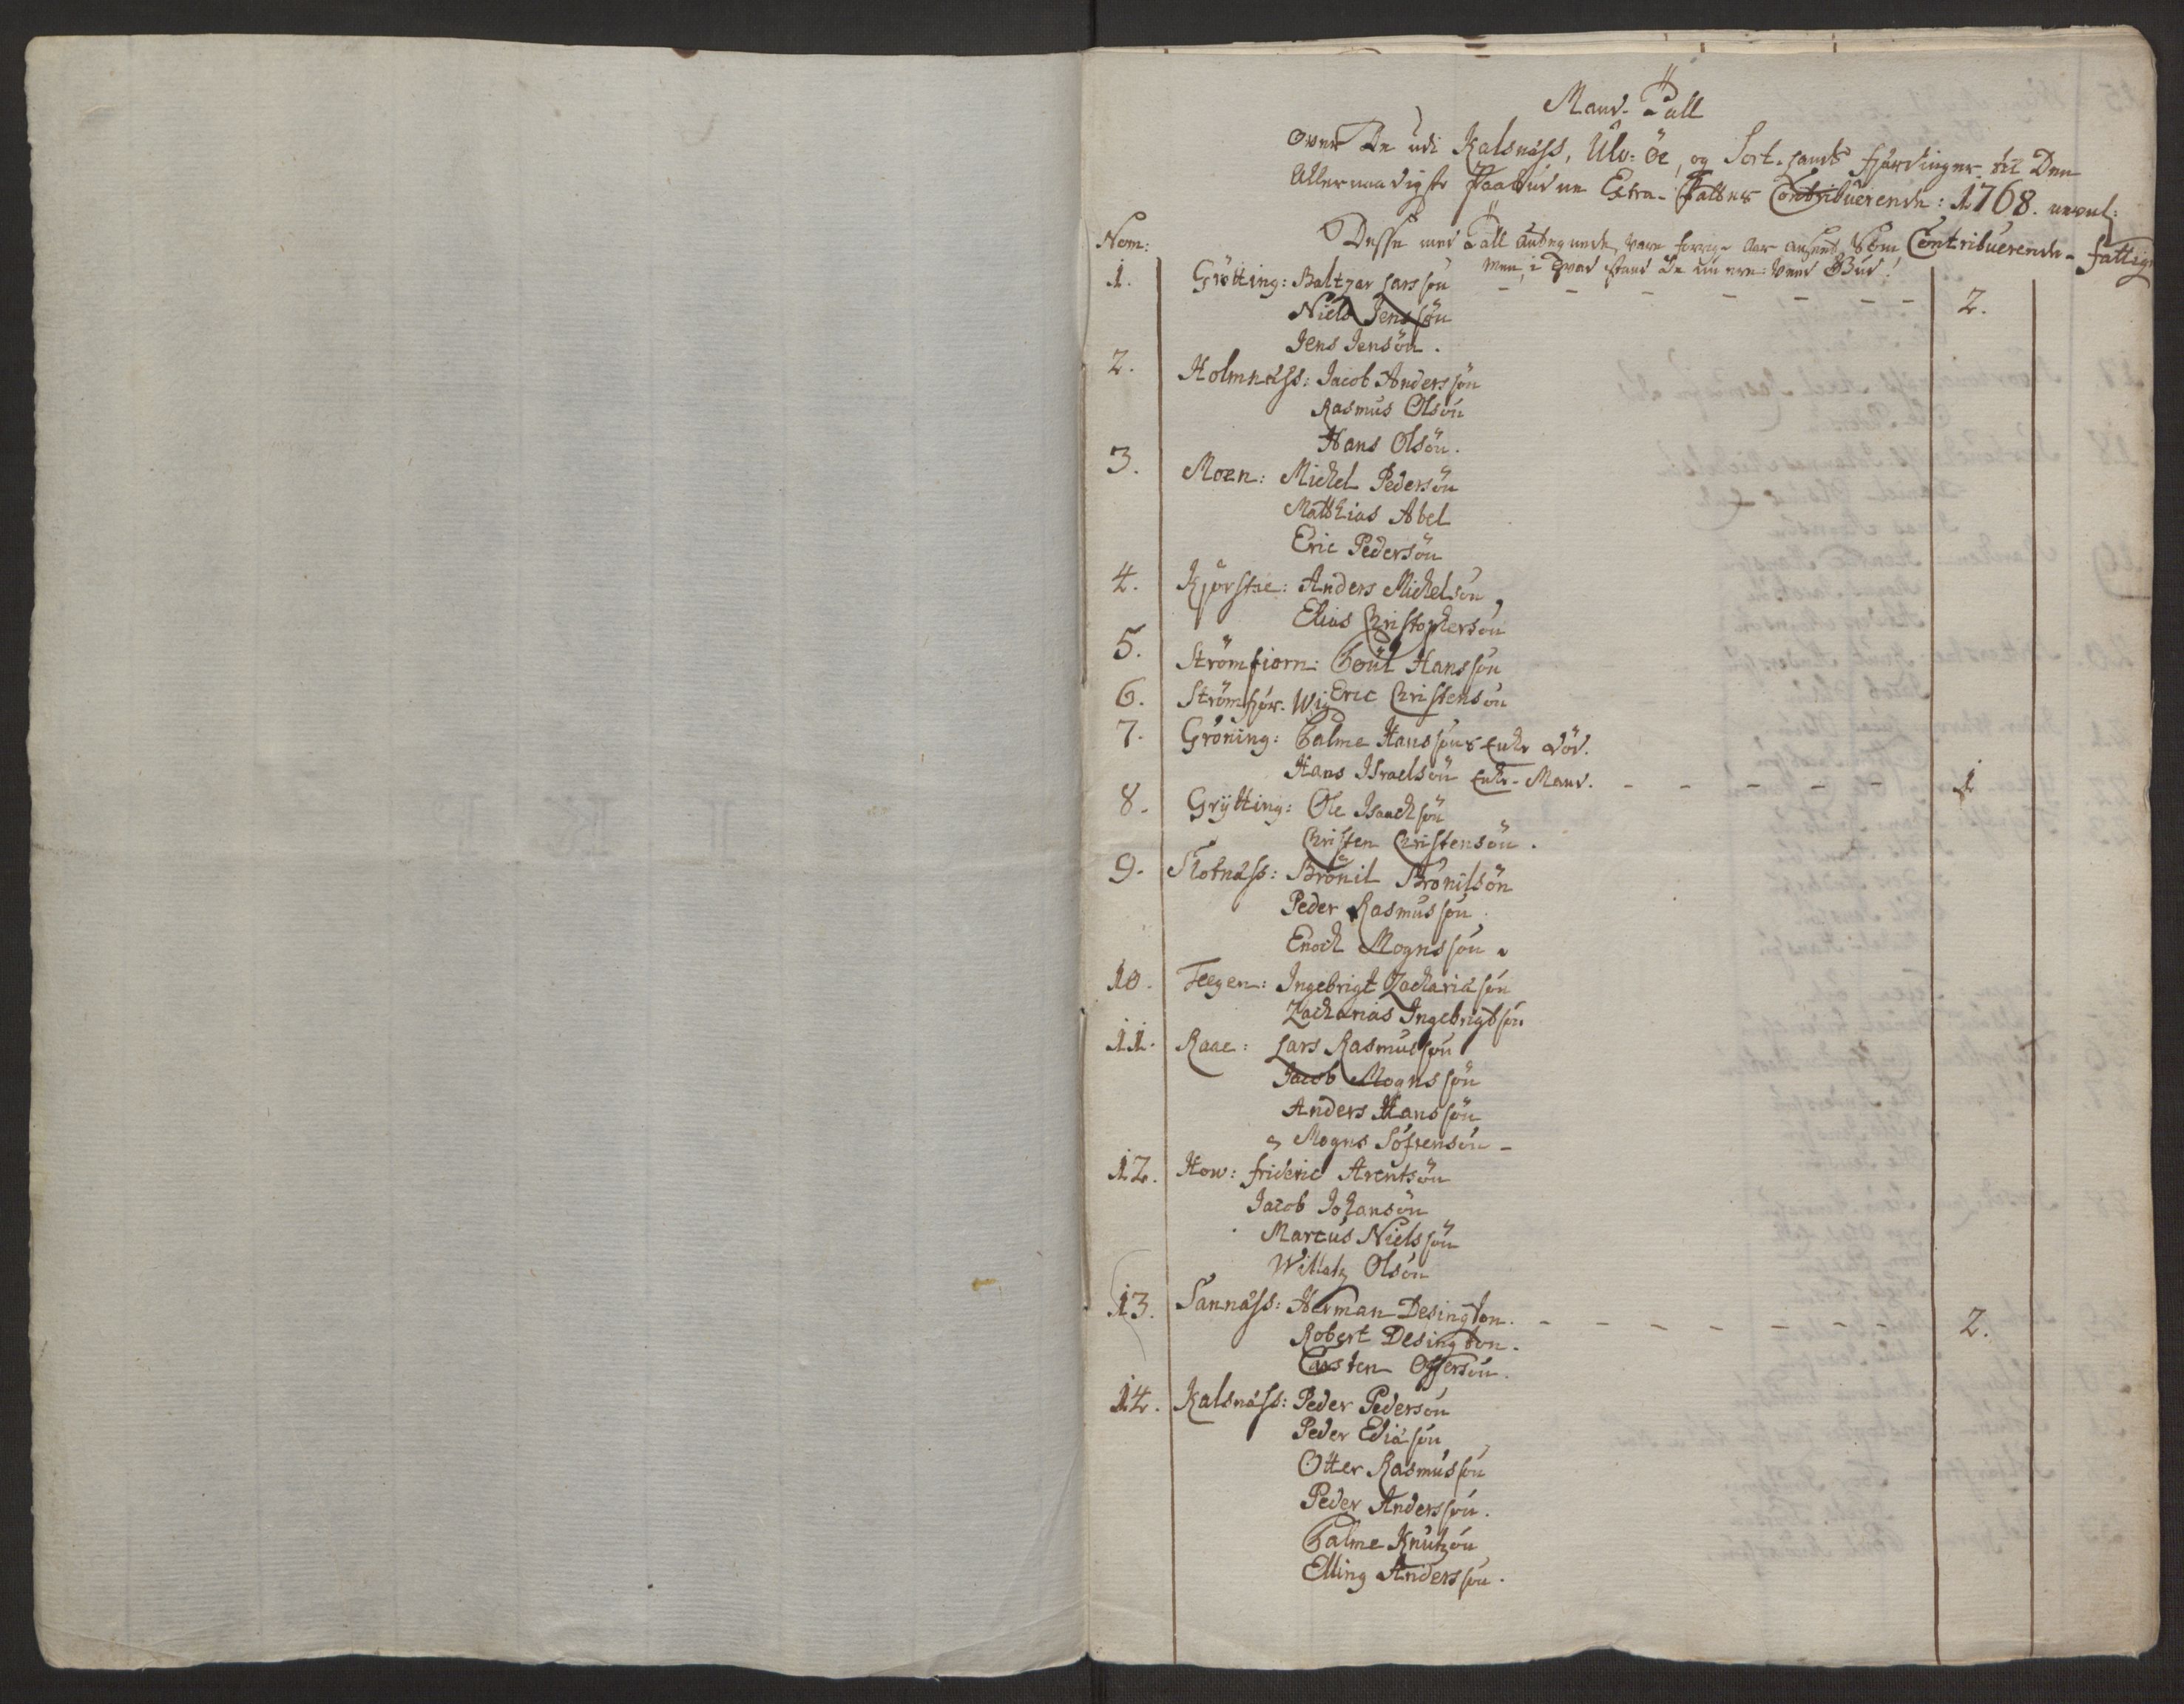 Mand-Tall
over De udi Kalsnæss, Ulv-Öe, og Sort-lands fjerdinger til Den
Allernaadigste Paabudne Extra-Skattes Contribuerende: 1768.
Disse med Tall antegnede, vare forrige Aar ansett som Contribuerende-fattige
Men, i hvad stand de nu ere: veed Gud!
Nom:
1. Grötting: Baltzer Larssön - - - - - - - - 2.
Niels Jenssön
Jens Jensön.
2. Holmnæss: Jacob Anderssön
Rasmus Olsön
Hans Olsön.
3. Moen: Michel Pedersön
Matthias Abel
Eric Pedersön
4. Kjörstæ: Anders Michelsön
Elias Christophersön
5. Strömfiorn: Poul Hanssön
6. Strömfjor. Wig Eric Christensön
7. Gröning: Palme Hanssöns Enke död.
Hans Israelsön Enke-Mand. - - - - - 1
8. Grytting: Ole Isaachsön
Christen Christensön.
9. Slotnæss: Brönil Brönilsön
Peder Rasmussön
Enoch Mognssön.
10. Teegen: Ingebrigt Zachariasön
Zacharias Ingebrigtsön
11. Raae: Lars Rasmussön
Jacob Mognssön
Anders Hanssön
Mogns Söfrensön -
12. How: frideric Arentsön
Jacob Johansön
Marcus Nielssön
Willatz Olsön
13. Sannæss: Herman Desington. - - - - - - - 2.
Robert Desington.
Carsten Offersön.
14. Kalsnæss: Peder Pedersön
Peder Ediasön
Otter Rasmussön
Peder Anderssön.
Palme Knutzön
Elling Anderssön.